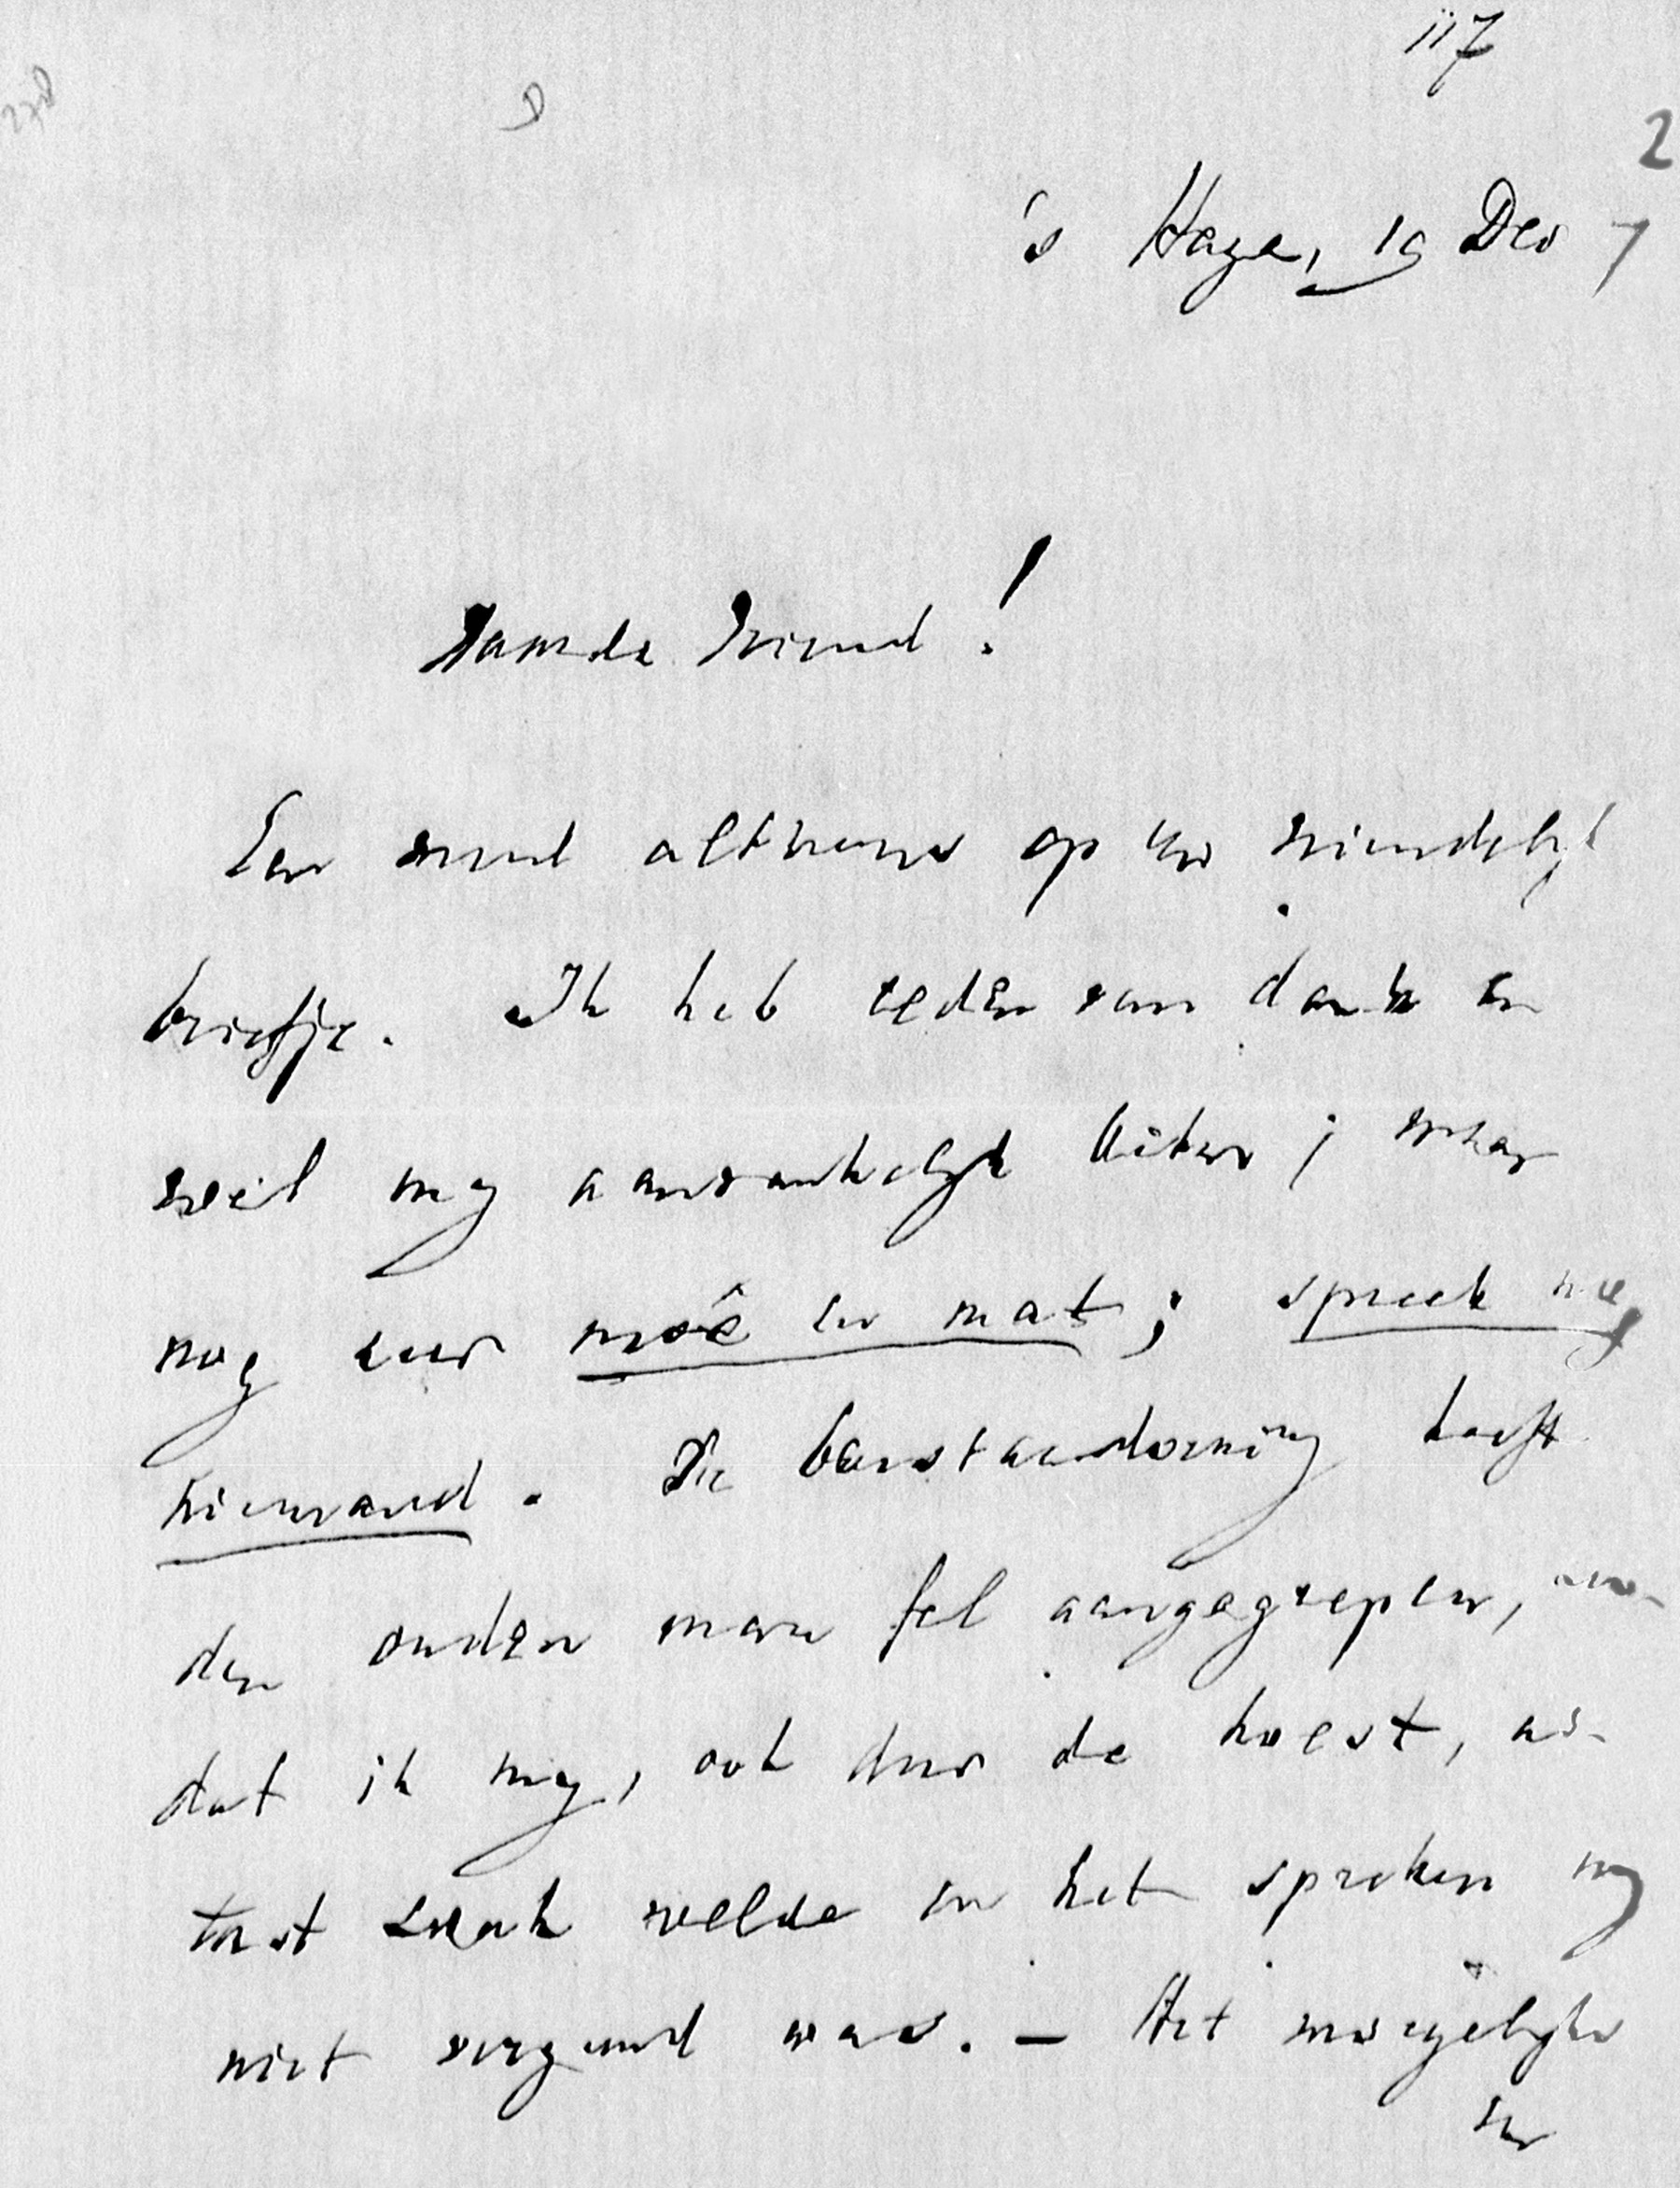 117
2
's Hage, 19 Dec 7
Waarde Vriend!
Een woord althans op Uw vriendelijk
briefje. Ik heb reden van dank en
voel mij aanvankelijk beter; maar
nog zeer moê en mat; spreek nog
niemand. De ongesteldheid heeft
den ouden man fel aangegrepen, zoo-
dat ik mij, ook door de hoest, ui-
terst zwak voelde en het spreken mij
niet vergund was. — Het mogelijke
en